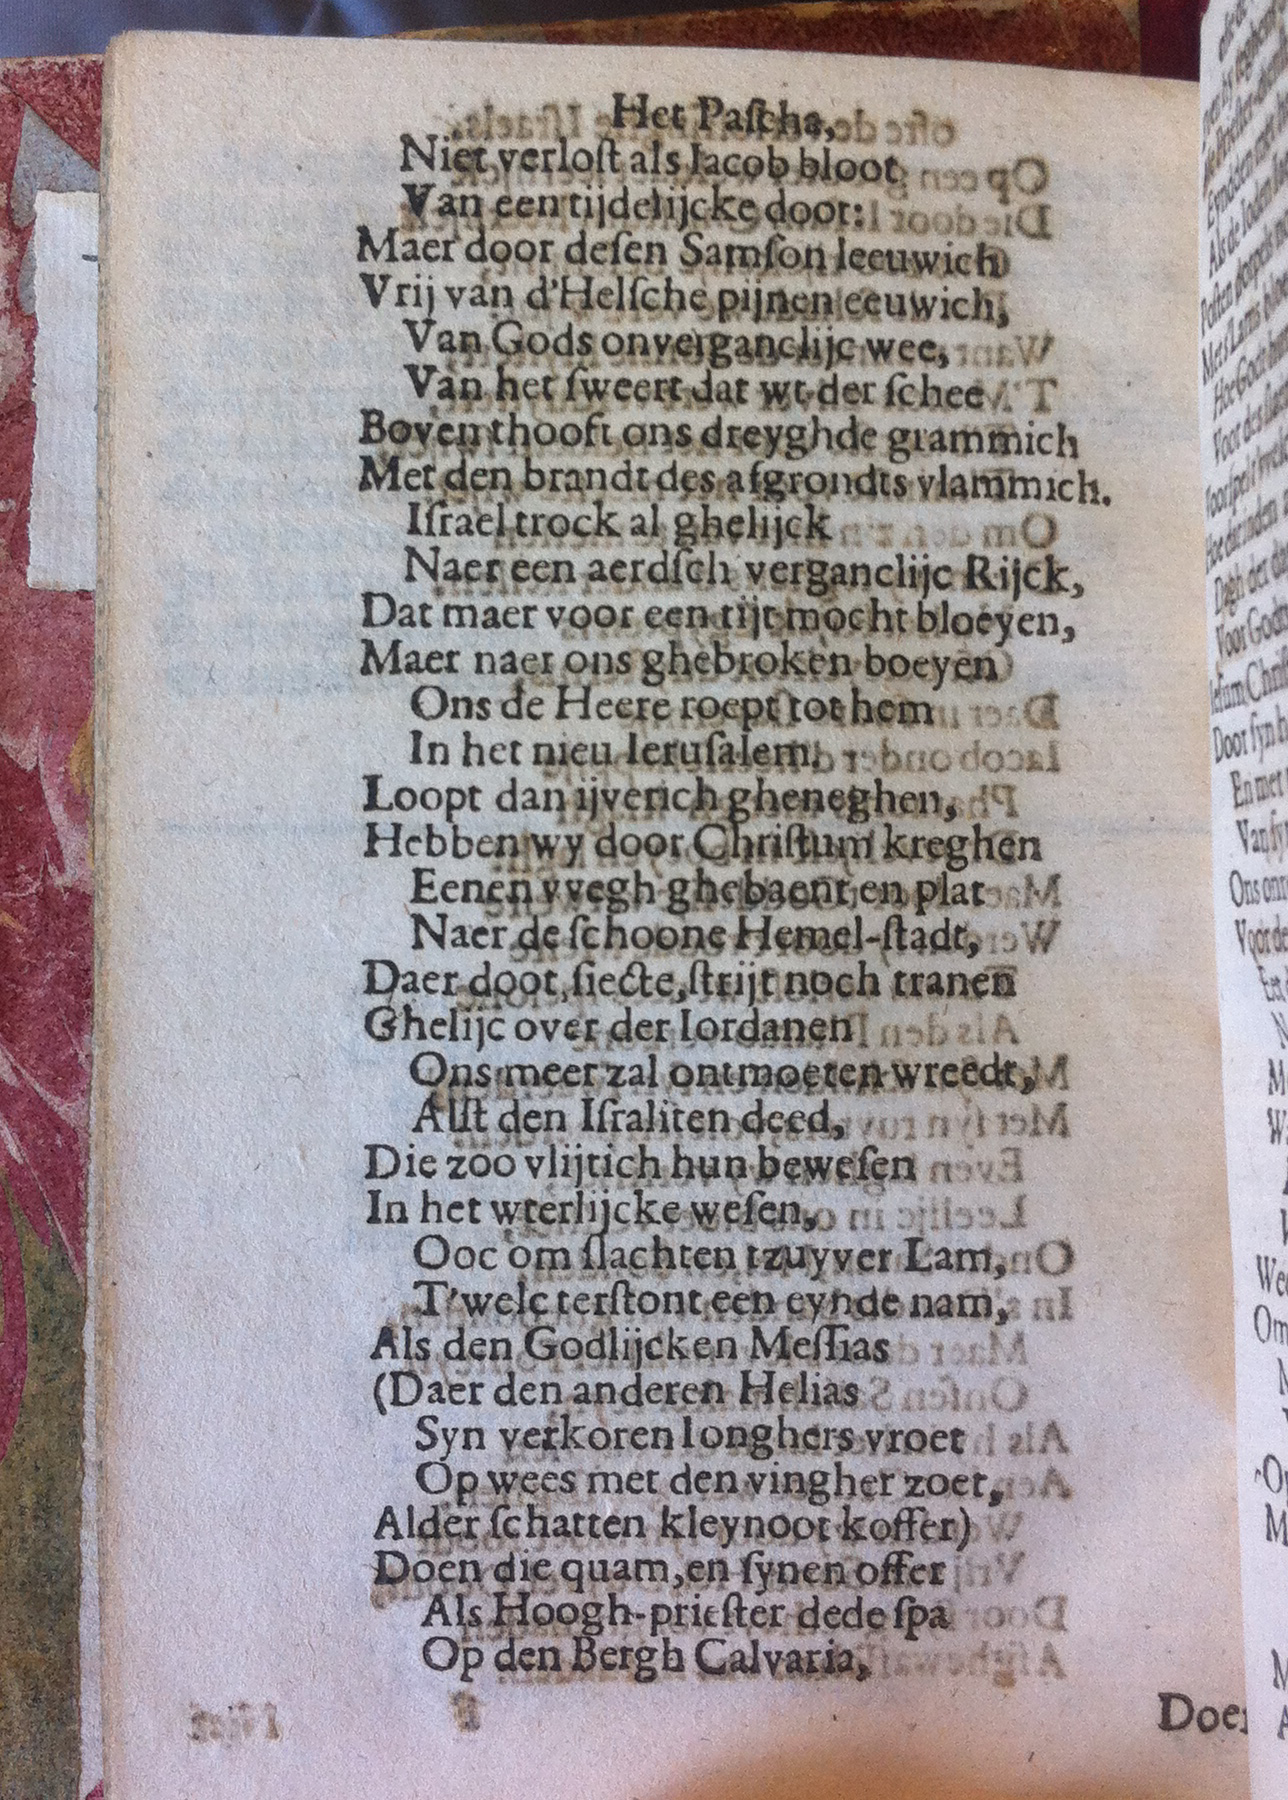 Het Paſcha,
Niet verloſt als Iacob bloot
Van een tijdelijcke doot:
Maer door deſen Samſon leeuwich
Vrij van d'Helſche pijnen eeuwich,
Van Gods onverganclijc wee,
Van het ſweert dat wt der ſchee
Boven thooft ons dreyghde grammich
Met den brandt des afgrondts vlammich.
Iſrael trock al ghelijck
Naer een aerdſch verganclijc Rijck,
Dat maer voor een tijt mocht bloeyen,
Maer naer ons ghebroken boeyen
Ons de Heere roept tot hem
In het nieu Ieruſalem.
Loopt dan ijverich gheneghen,
Hebben wy door Chriſtum kreghen
Eenen vvegh ghebaent en plat
Naer de ſchoone Hemel-ſtadt,
Daer doot, ſiecte, ſtrijt noch tranen
Ghelijc over der Iordanen
Ons meer zal ontmoeten wreedt,
Alſt den Iſraliten deed,
Die zoo vlijtich hun beweſen
In het wterlijcke weſen,
Ooc om ſlachten tzuyver Lam,
T'welc terſtont een eynde nam,
Als den Godlijcken Meſſias
(Daer den anderen Helias
Syn verkoren Ionghers vroet
Op wees met den vingher zoet,
Alder ſchatten kleynoot koffer)
Doen die quam, en ſynen offer
Als Hoogh-prieſter dede ſpa
Op den Bergh Calvaria,